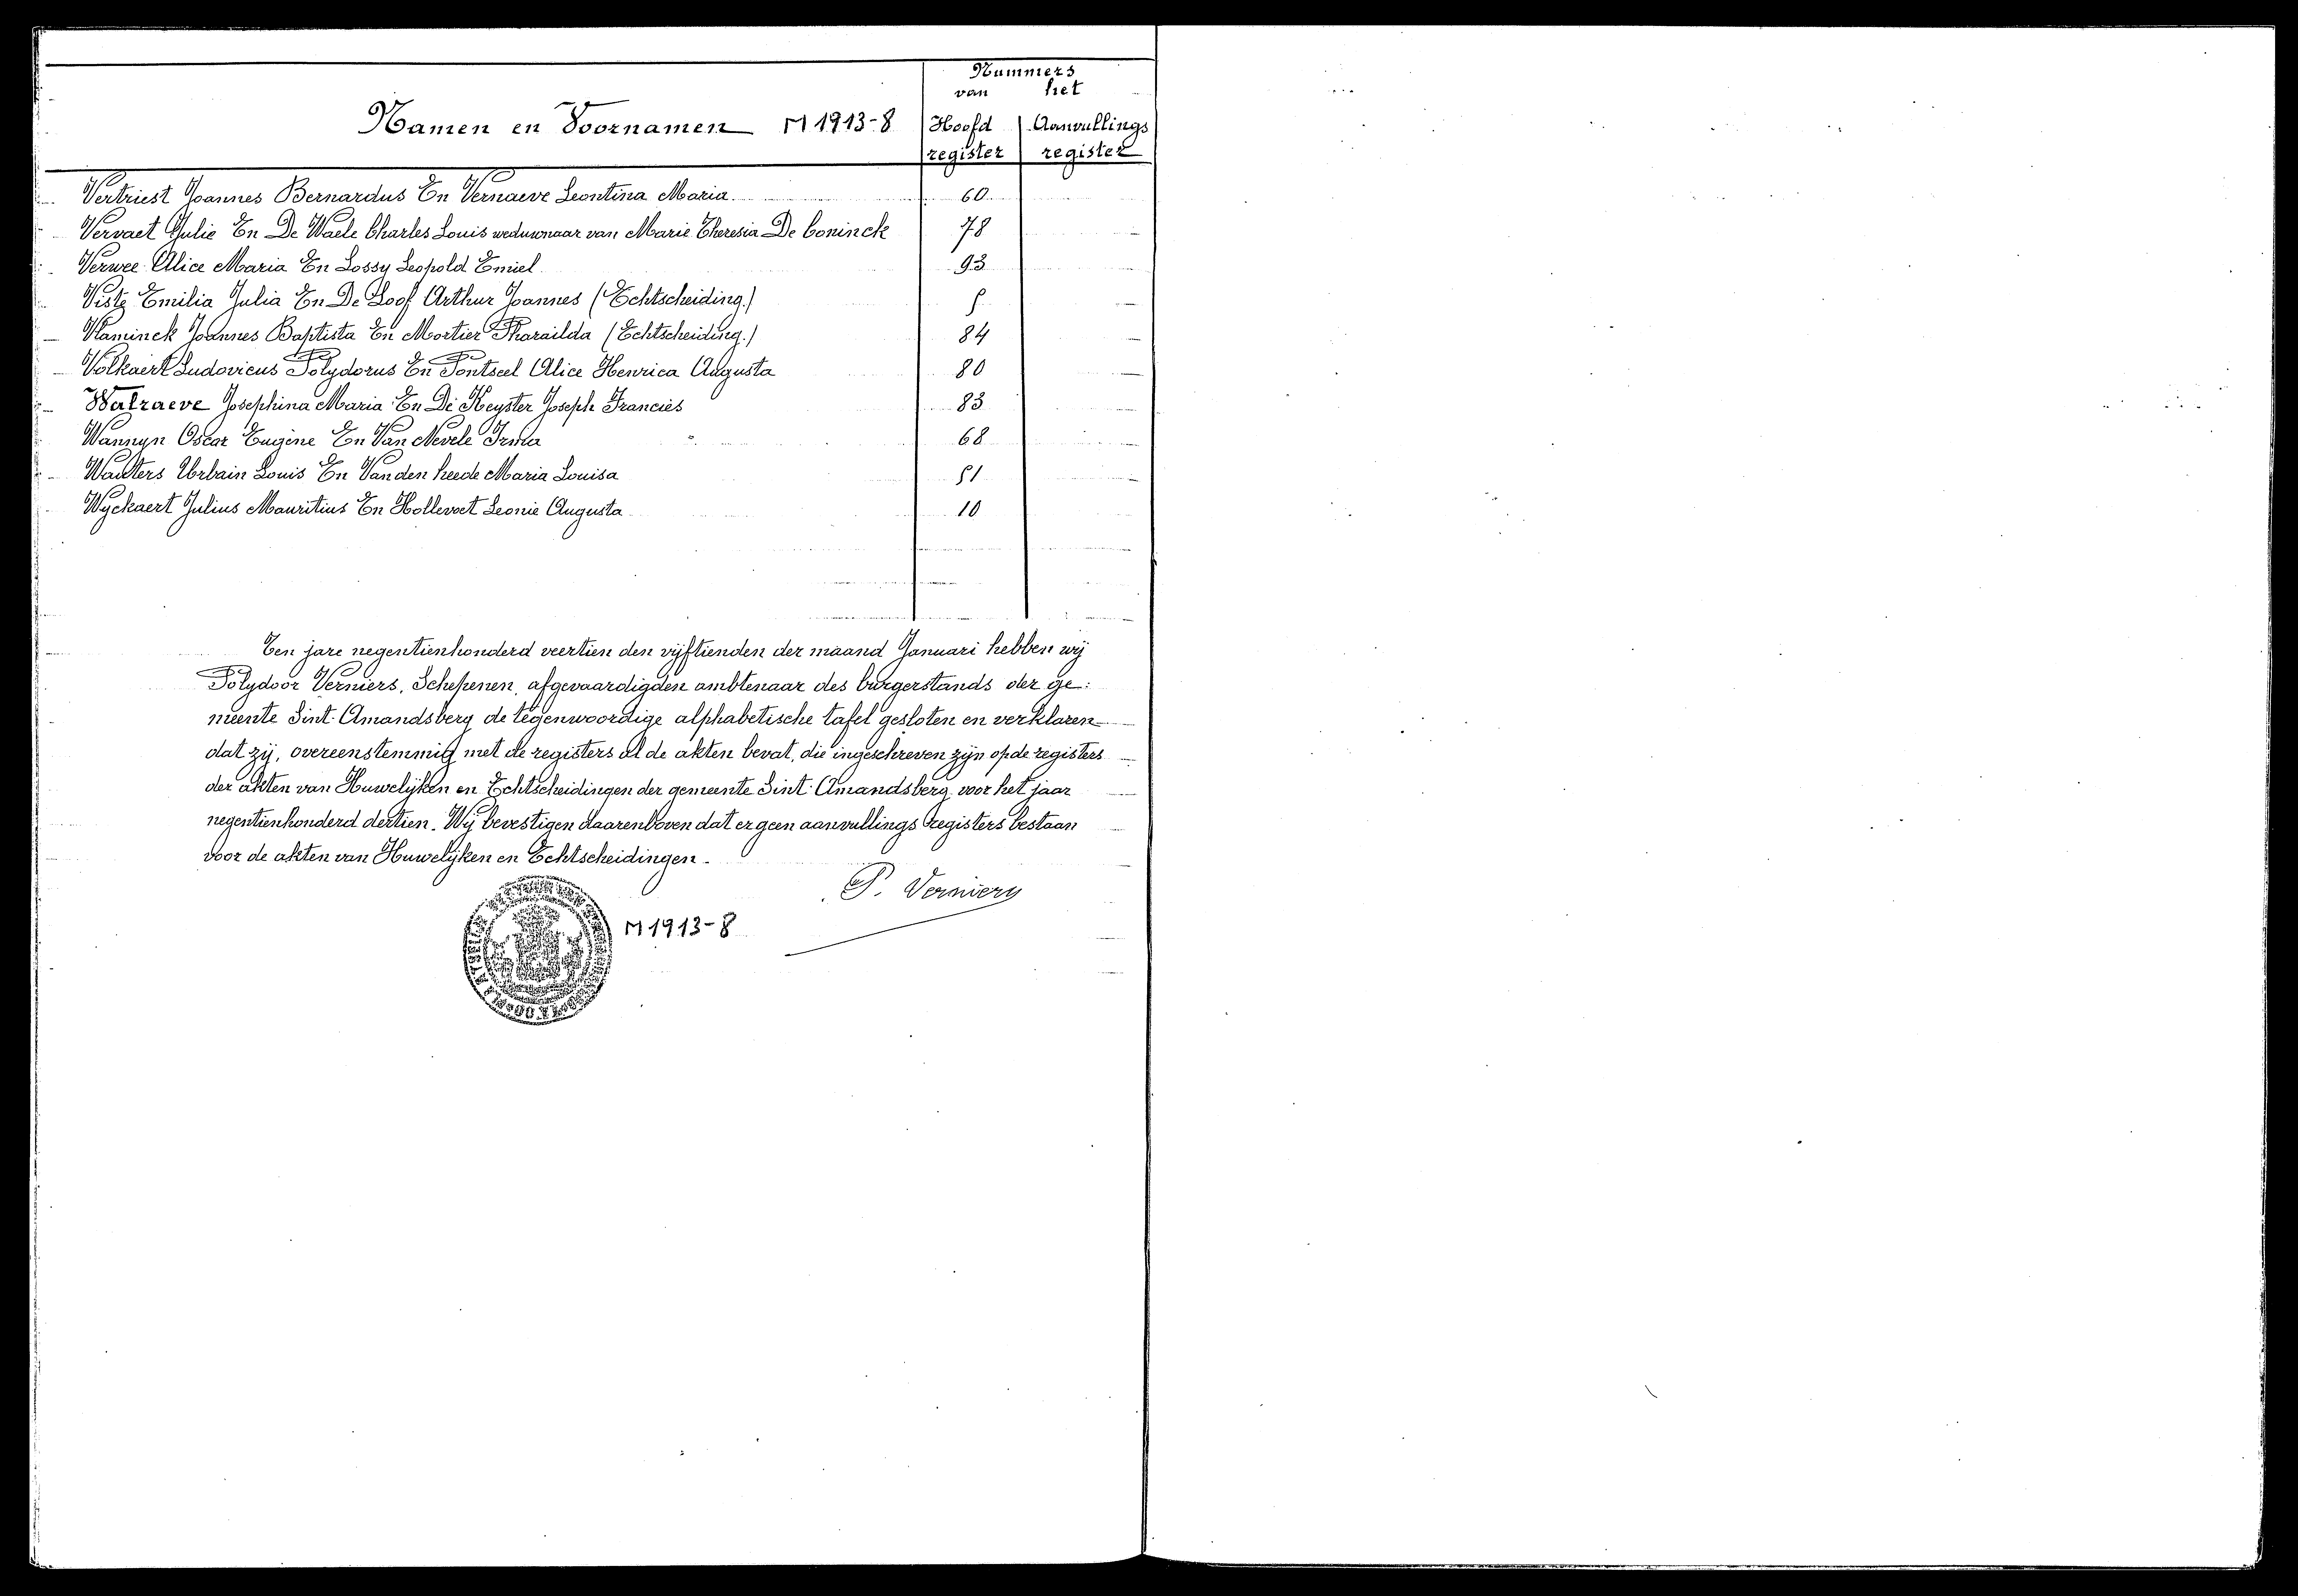 Nummers
van het
Namen en Voornamen M 1913-8 Hoofd Aanvullings
register register
Vertriest Joannes Bernardus En Vernaeve Leontina Maria 60
Vervaet Julie En De Waele Charles Louis weduwnaar van Marie Theresia De Coninck 78
Verwee Alice Maria En Lossy Leopold Emiel 93
Viste Emilia Julia En De Loof Arthur Joannes (Echtscheiding.) 5
Vlaminck Joannes Baptista En Mortier Pharaïlda (Echtscheiding.) 84
Volkaert Ludovicus Polydorus En Pontseel Alice Henrica Augusta 80
Walraeve Josephina Maria En De Keyster Joseph Francies 83
Wannyn Oscar Eugène En Van Nevele Irma 68
Wauters Urbain Louis En Vanden heede Maria Louisa 51
Wyckaert Julius Mauritius En Hollevoet Leonie Augusta 10
Ten jare negentienhonderd veertien den vijftienden der maand Januari hebben wij
Polydoor Verniers, Schepenen, afgevaardigden ambtenaar des burgerstands der ge:
meente Sint-Amandsberg de tegenwoordige alphabetische tafel gesloten en verklaren
dat zij, overeenstemmig met de registers al de akten bevat, die ingeschreven zijn op de registers
der akten van Huwelijken en Echtscheidingen der gemeente Sint-Amandsberg voor het jaar
negentienhonderd dertien. Wij bevestigen daarenboven dat er geen aanvullings registers bestaan
voor de akten van Huwelijken en Echtscheidingen.
P. Verniers
M 1913-8